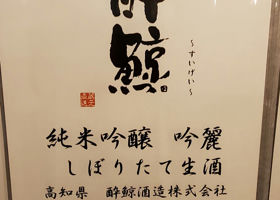 酔鯨
～すいげい～
純米吟醸 吟麗
しぼりたて生酒
高知県 酔鯨酒造株式会社